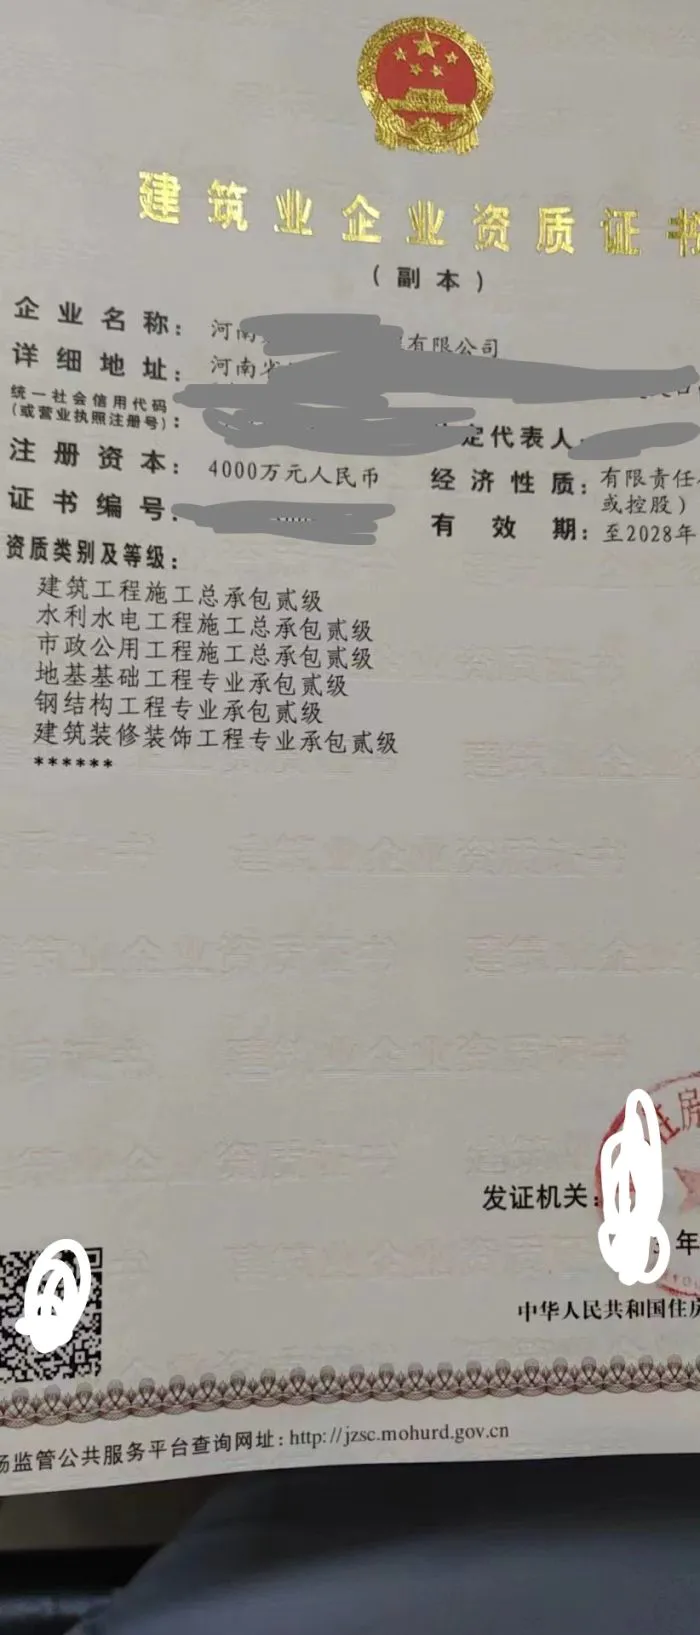 建筑业企业资质证书
(副本)
企业名称: 河南 有限公司
详细地址: 河南省
统一社会信用代码
(或营业执照注册号): 定代表人:
注册资本: 4000万元人民币 经济性质: 有限责任
或控股)
证书编号: 有效期: 至2028年
资质类别及等级:
建筑工程施工总承包贰级
水利水电工程施工总承包贰级
市政公用工程施工总承包贰级
地基基础工程专业承包贰级
钢结构工程专业承包贰级
建筑装修装饰工程专业承包贰级
******
住房
发证机关:
年
中华人民共和国住房
场监管公共服务平台查询网址: http://jzsc.mohurd.gov.cn